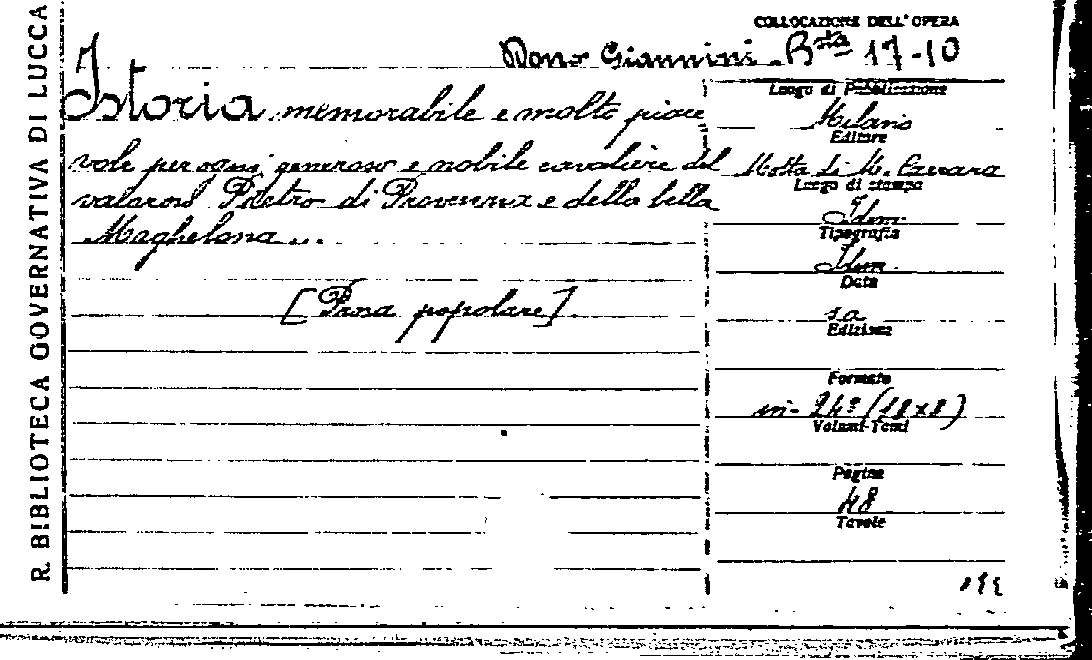 R. BIBLIOTECA GOVERNATIVA DI LUCCA
COLLOCAZIONE DELL'OPERA
Dono Giannini - Bsta 17-10
Istoria memorabile e molto piace
vole per ogni generoso e nobile cavaliere del
valoroso Pietro di Provenza e della bella
Maghelona...
[Prosa popolare].
Luogo di Pubblicazione
Milano
Editore
Motta di M. Carrara
Luogo di stampa
Idem.
Tipografia
Idem.
Data
s a
Edizione
Formato
in- 24º (18x8)
Volumi-Tomi
Pagine
48
Tavole